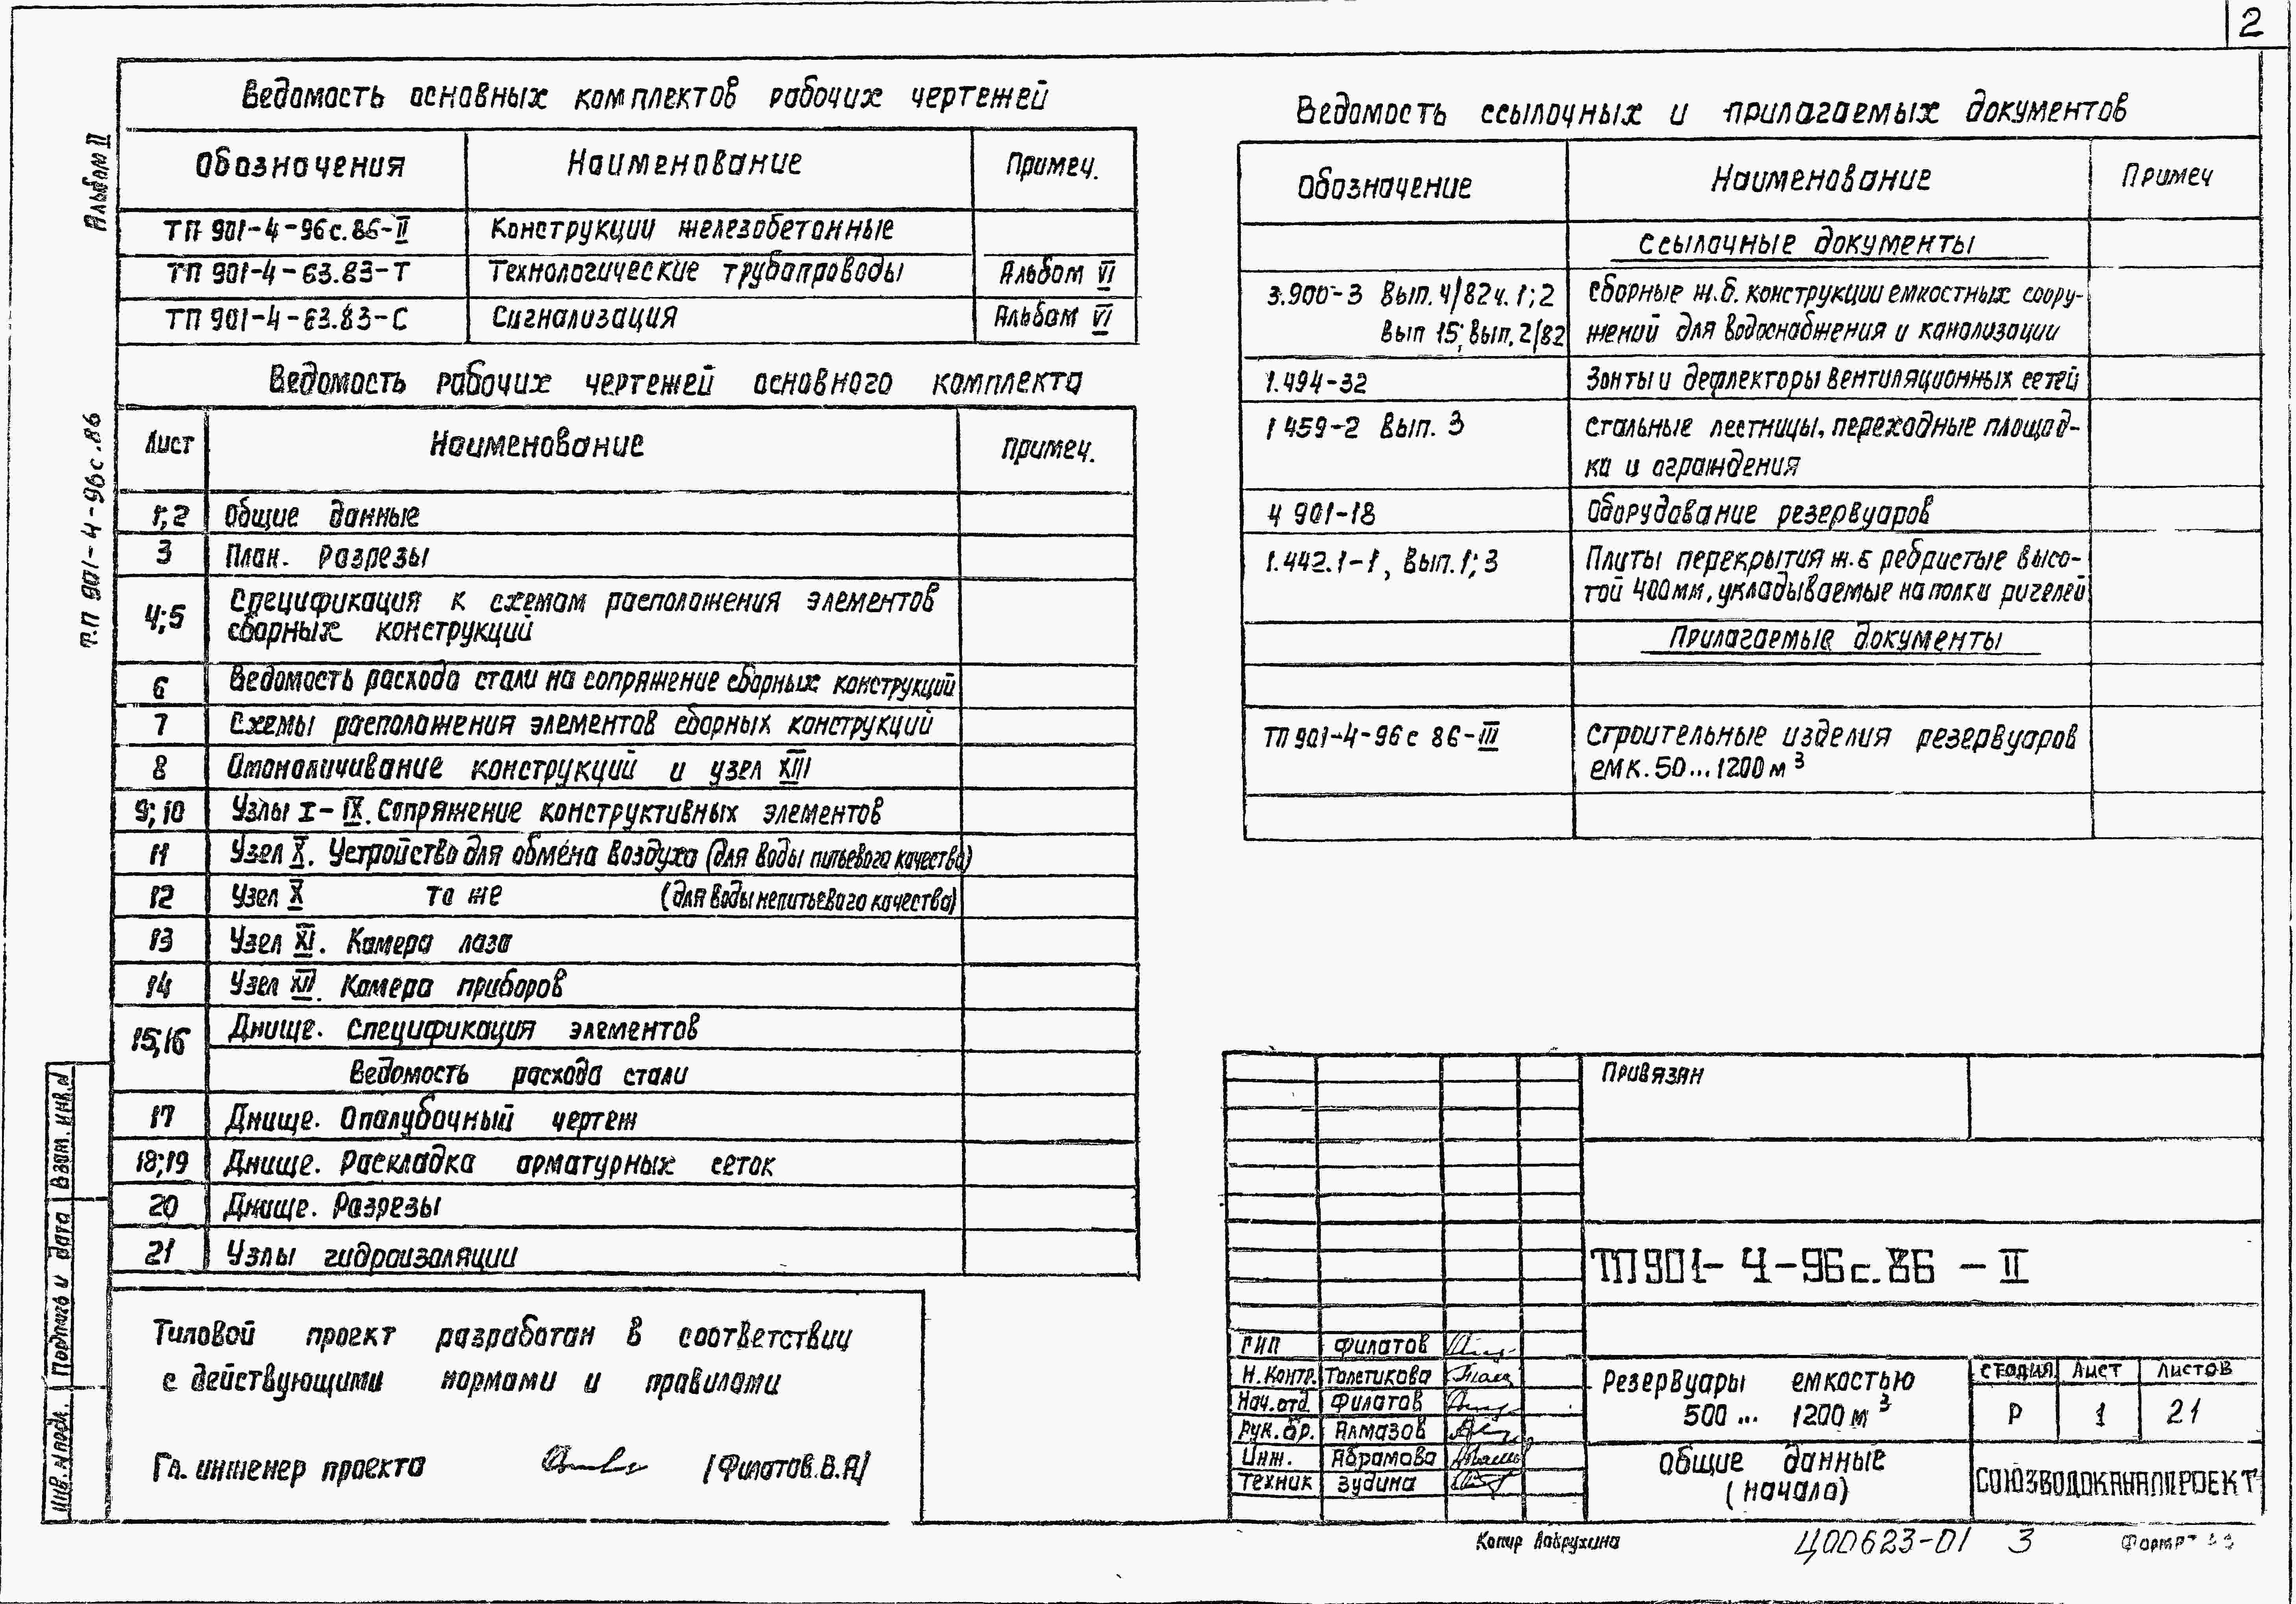 2
Альбом II
Т.П 901-4-96с.86
Ведомость основных комплектов рабочих чертежей
Обозначения Наименование Примеч.
ТП 901-4-96с.86-II Конструкции железобетонные
ТП 901-4-63.83-Т Технологические трубопроводы Альбом VI
ТП 901-4-63.83-С Сигнализация Альбом VI
Ведомость рабочих чертежей основного комплекта
Лист Наименование Примеч.
1;2 Общие данные
3 План. Разрезы
4;5 Спецификация к схемам расположения элементов
сборных конструкций
6 Ведомость расхода стали на сопряжение сборных конструкций
7 Схемы расположения элементов сборных конструкций
8 Омоноличивание конструкций и узел XIII
9;10 Узлы I-IX. Сопряжение конструктивных элементов
11 Узел X. Устройство для обмена воздуха (для воды питьевого качества)
12 Узел X то же (для воды непитьевого качества)
13 Узел XI. Камера лаза
14 Узел XII. Камера приборов
15;16 Днище. Спецификация элементов
Ведомость расхода стали
17 Днище. Опалубочный чертеж
18;19 Днище. Раскладка арматурных сеток
20 Днище. Разрезы
21 Узлы гидроизоляции
Типовой проект разработан в соответствии
с действующими нормами и правилами
Гл. инженер проекта /Филатов.В.А/
Инв.№ подл. Подпись и дата Взам. инв.№
Ведомость ссылочных и прилагаемых документов
Обозначение Наименование Примеч
Ссылочные документы
3.900-3 Вып. 4/82 ч. 1;2 Сборные ж.б. конструкции емкостных соору-
Вып 15; вып. 2/82 жений для водоснабжения и канализации
1.494-32 Зонты и дефлекторы вентиляционных сетей
1 459-2 Вып. 3 Стальные лестницы, переходные площад-
ка и ограждения
4 901-18 Оборудование резервуаров
1.442.1-1, Вып. 1; 3 Плиты перекрытия ж.б ребристые высо-
той 400мм, укладываемые на полки ригелей
Прилагаемые документы
ТП 901-4-96с 86-III Строительные изделия резервуаров
емк. 50...1200 м³
Привязан
ТП 901-4-96с.86 - II
ГИП Филатов
Н.Контр. Толстикова
Нач.отд Филатов
Рук.бр. Алмазов
Инж. Абрамова
Техник Зудина
Резервуары емкостью
500 ... 1200 м³
Стадия Лист Листов
Р 1 21
Общие данные
(начало)
СОЮЗВОДОКАНАЛПРОЕКТ
Копир Вавружина
Ц00623-01 3
Формат